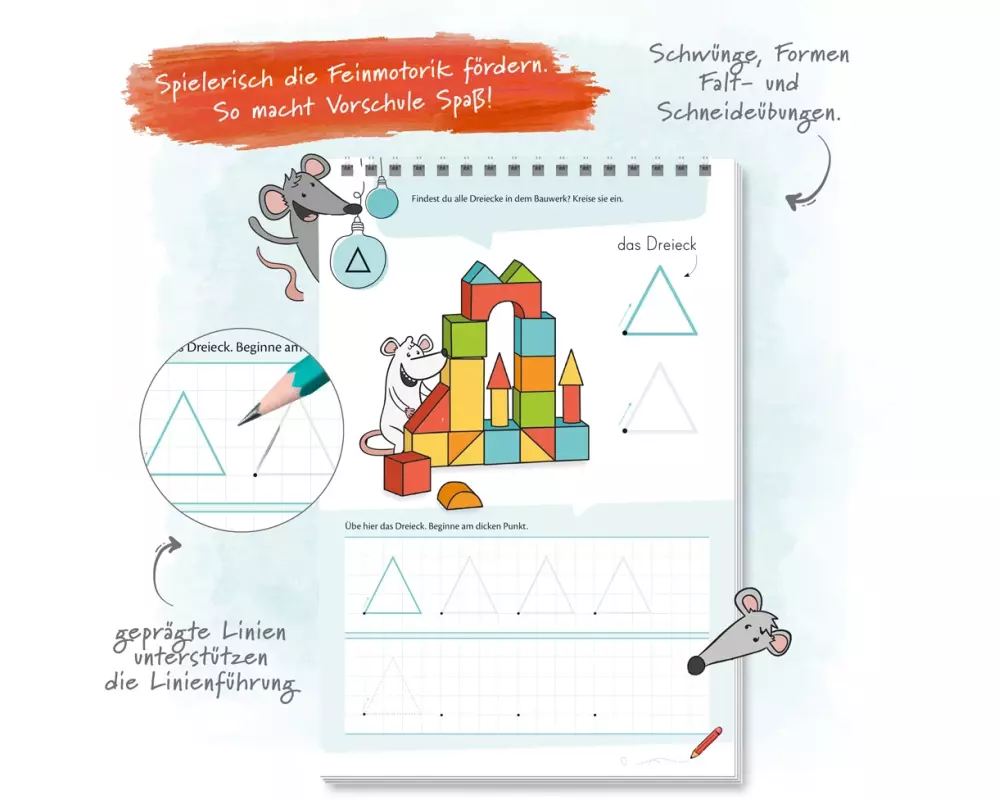 Spielerisch die Feinmotorik fördern.
So macht Vorschule Spaß!
Schwünge, Formen
Falt- und
Schneideübungen.
Findest du alle Dreiecke in dem Bauwerk? Kreise sie ein.
das Dreieck
s Dreieck. Beginne am
Übe hier das Dreieck. Beginne am dicken Punkt.
geprägte Linien
unterstützen
die Linienführung